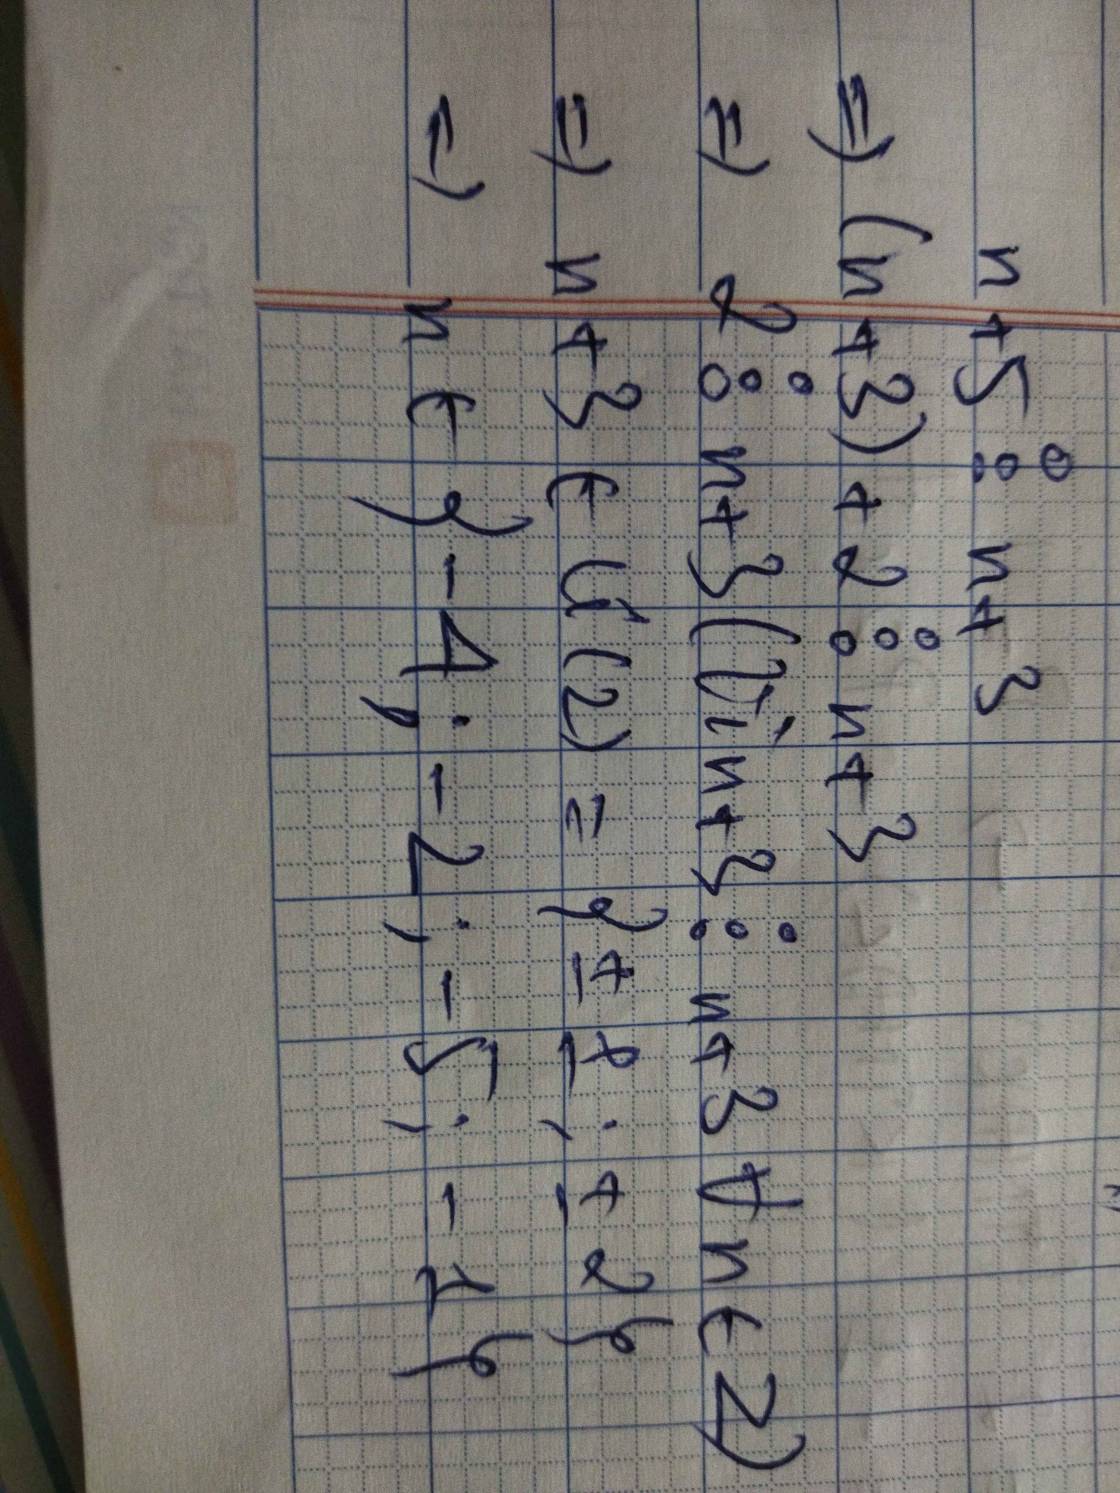 n+5 ⋮ n+3
=) (n+3)+2 ⋮ n+3
=) 2 ⋮ n+3 (Vì n+3 ⋮ n+3 ∀ n ∈ Z)
=) n+3 ∈ Ư(2) = {±1; ±2}
=) n ∈ {-4; -2; -5; -1}